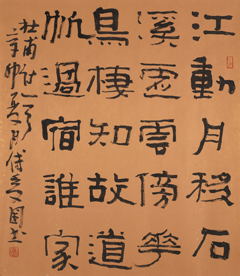 江動月移石
溪虛雲傍花
鳥棲知故道
帆過宿誰家
杜甫絕句
辛卯夏月傅